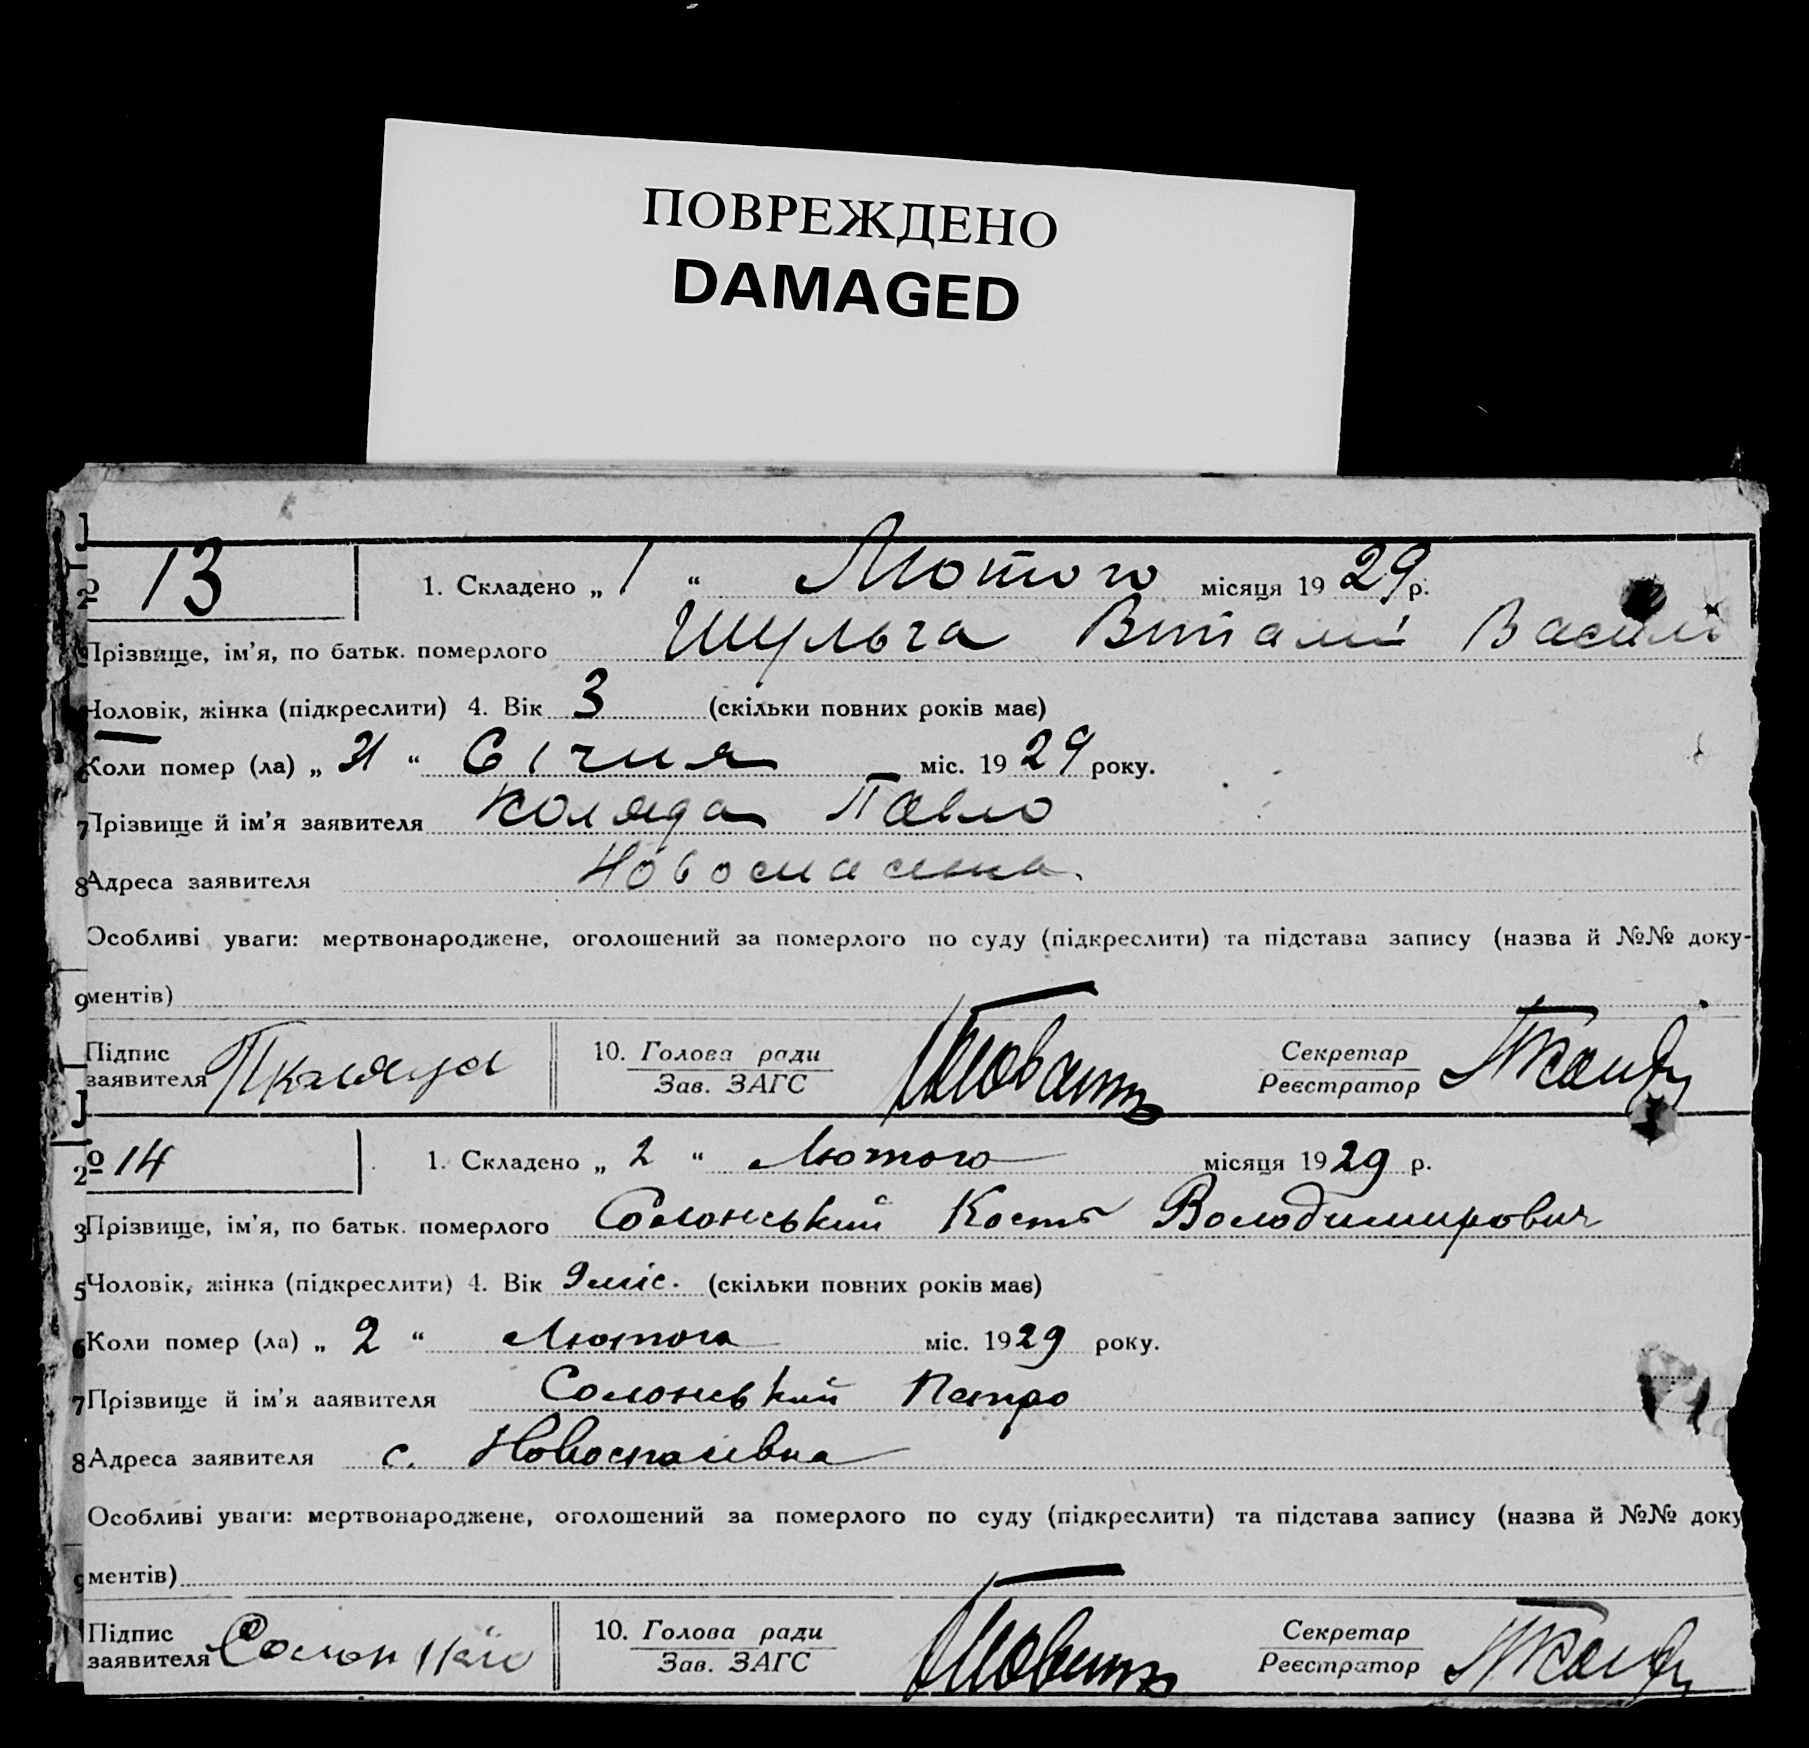 ПОВРЕЖДЕНО
DAMAGED
№ 13
1. Складено „ 1 “ Лютого місяця 1929 р.
2 Прізвище, ім’я, по батьк. померлого Шульга Віталій Васил
Чоловік, жінка (підкреслити) 4. Вік 3 (скільки повних років має)
Коли помер (ла) „ 31 “ Січня міс. 1929 року.
7 Прізвище й ім’я заявителя Коляда Павло
8 Адреса заявителя
Особливі уваги: мертвонароджене, оголошений за померлого по суду (підкреслити) та підстава запису (назва й №№ доку-
9 ментів)
Підпис заявителя П Коляда
10. Голова ради
Зав. ЗАГС
Секретар
Реєстратор
№ 14
1. Складено „ 2 “ Лютого місяця 1929 р.
2
3 Прізвище, ім’я, по батьк. померлого Солонський Кость Володимирович
5 Чоловік, жінка (підкреслити) 4. Вік 9 міс. (скільки повних років має)
6 Коли помер (ла) „ 2 “ Лютого міс. 1929 року.
7 Прізвище й ім’я ааявителя Солонський Петро
8 Адреса заявителя с. Новоспасівка
Особливі уваги: мертвонароджене, оголошений за померлого по суду (підкреслити) та підстава запису (назва й №№ доку
9 ментів)
Підпис заявителя
10. Голова ради
Зав. ЗАГС
Секретар
Реєстратор